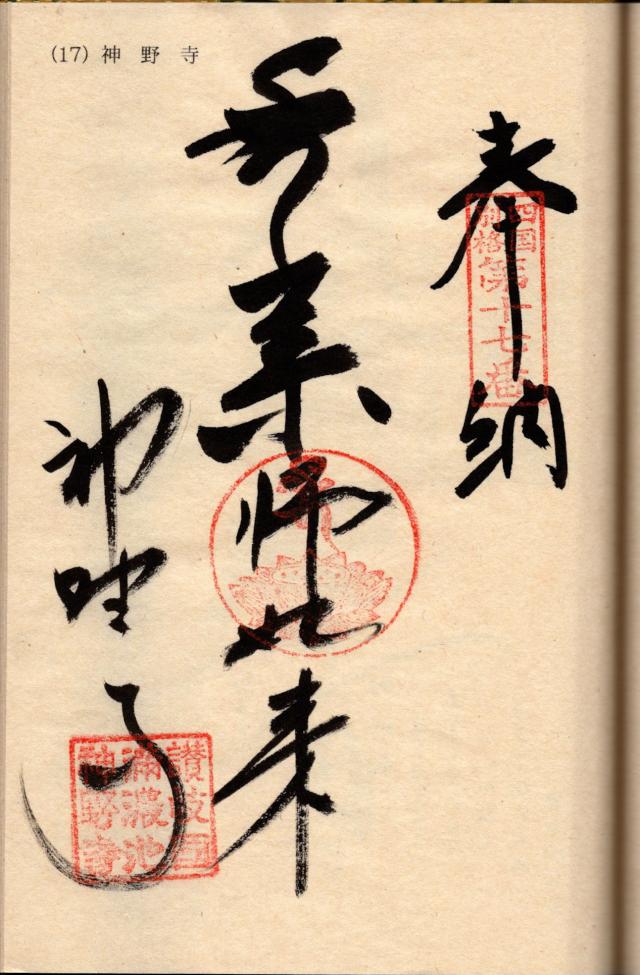 (17) 神野寺
奉納
四国
別格
第十七番
薬師如来
神野寺
讃岐国
満濃池
神野寺